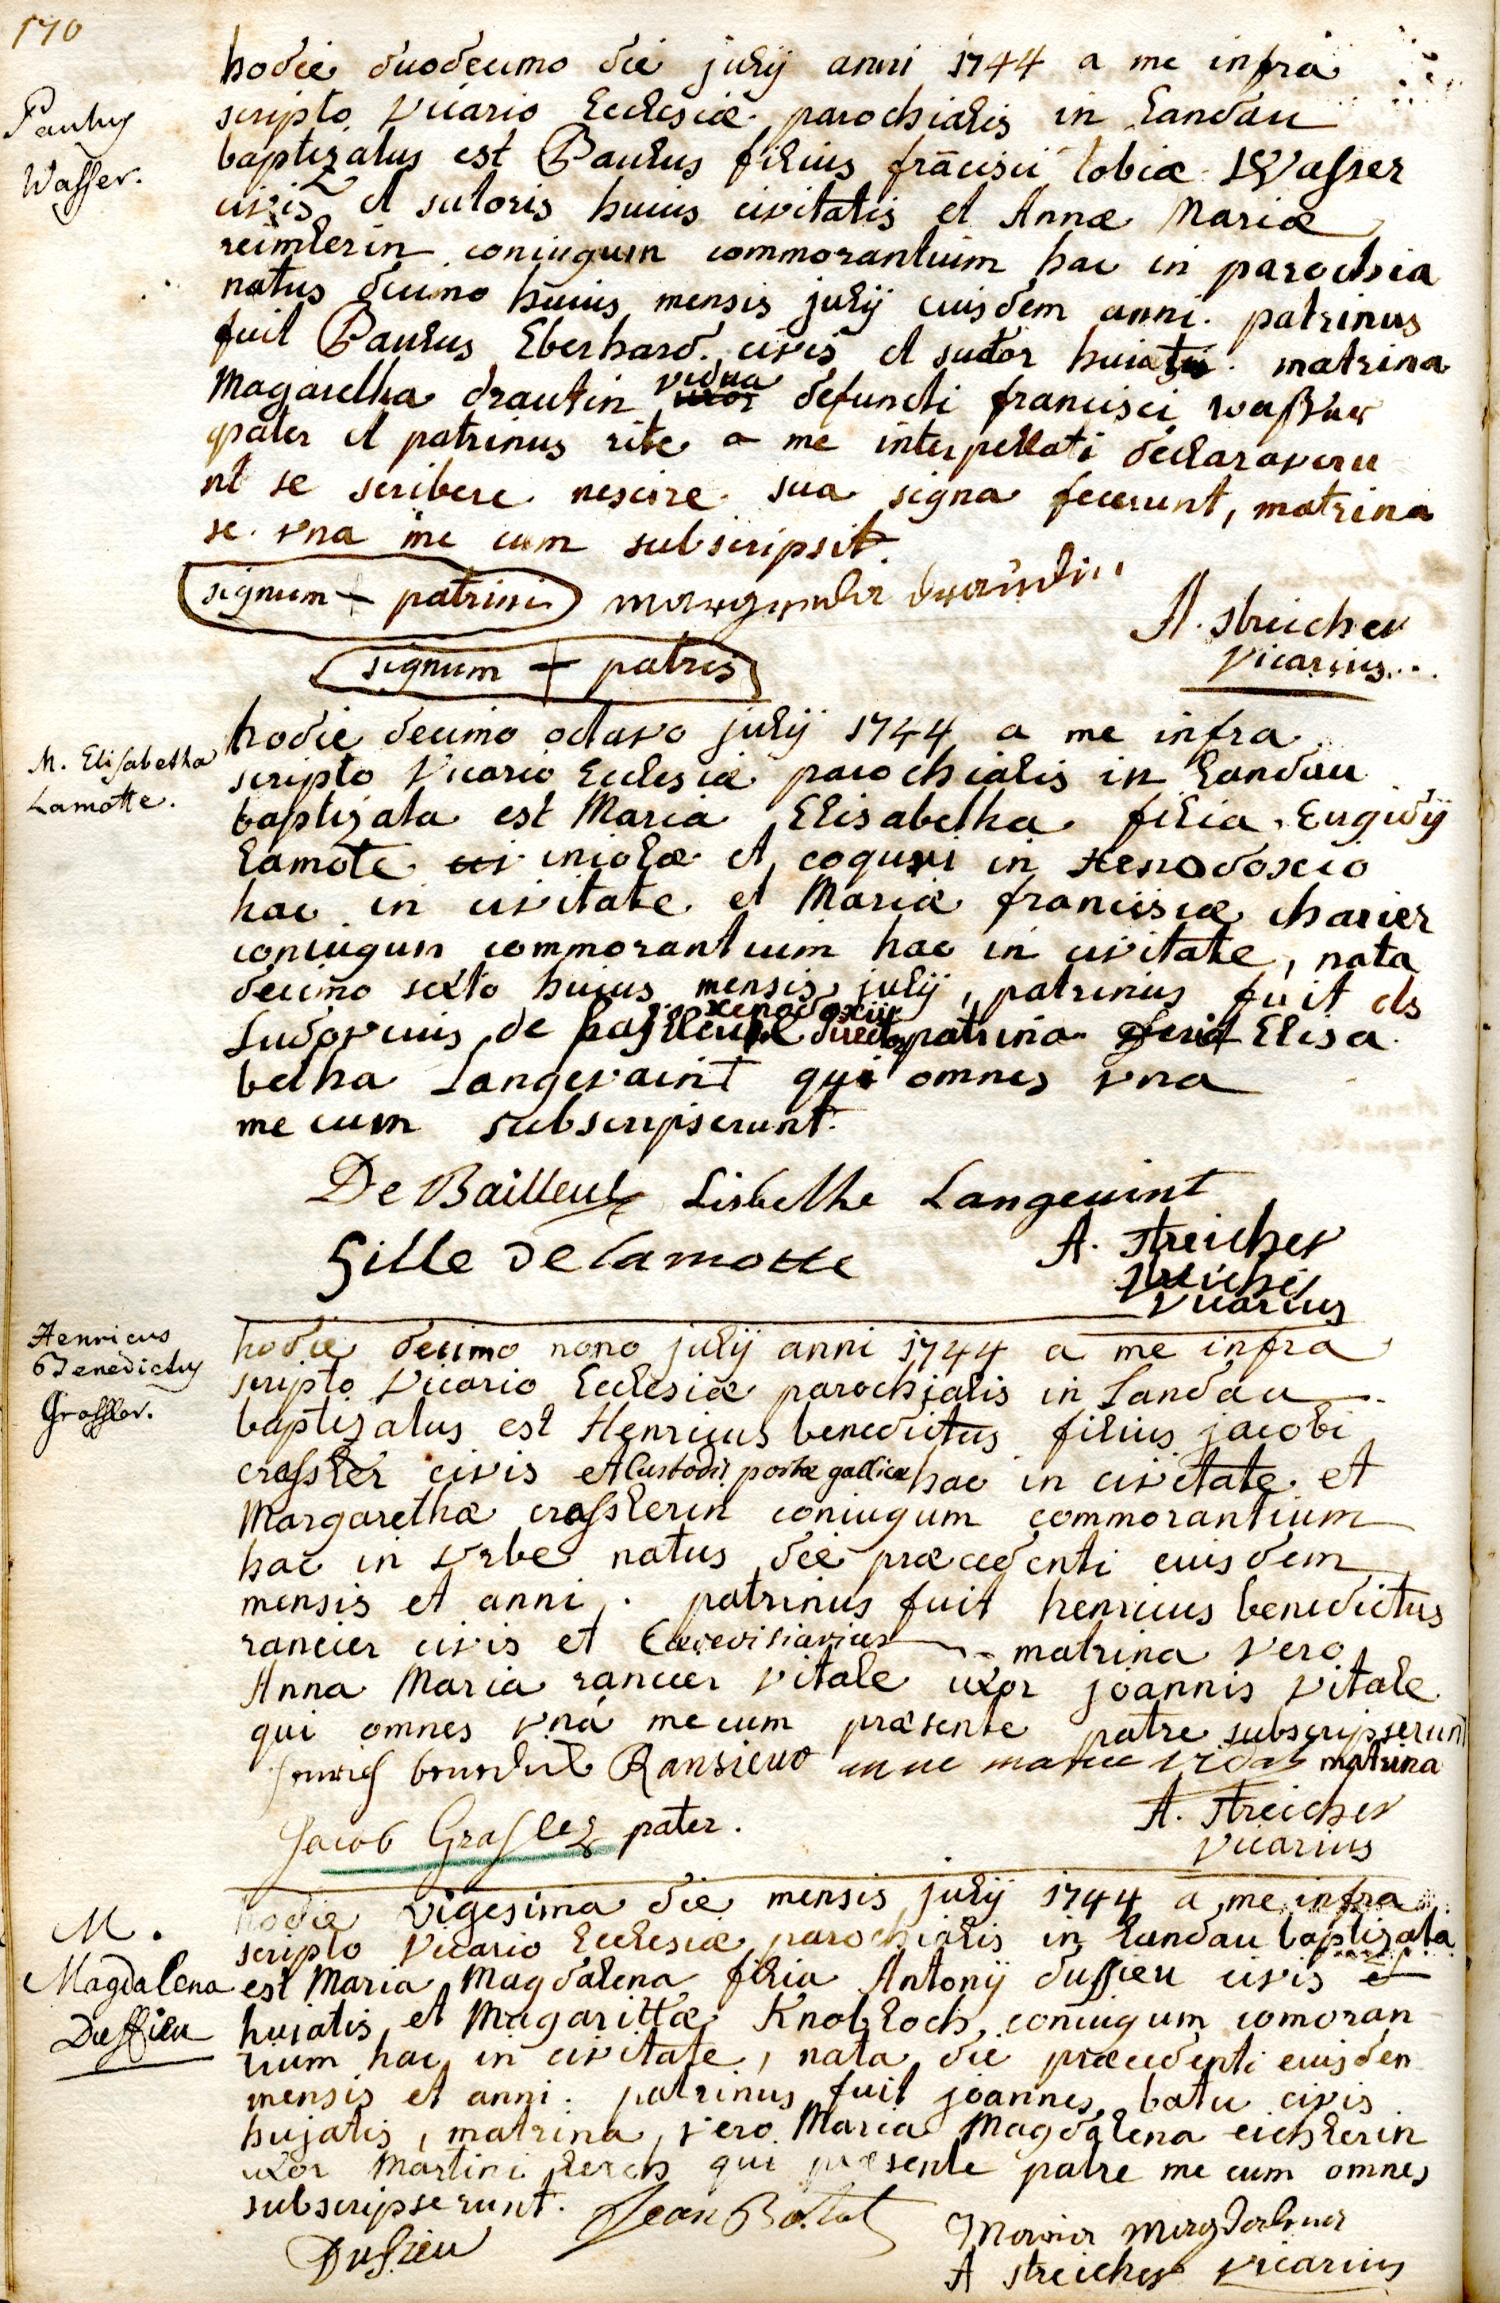 170
Paulus
Wasser.
hodie duodecimo die julij anni 1744 a me infra
scripto Vicario Ecclesiæ parochialis in Landau
baptizatus est Paulus filius francisci Tobiæ Wasser
civis et sutoris huius civitatis et Annæ Mariæ
reimlerin coniugum commorantium hac in parochia
natus decimo huius mensis julij eiusdem anni. patrinus
fuit Paulus Eberhard civis et sutor huiatis. matrina
Magaretha drautin vidua defuncti francisci
pater et patrinus rite a me interpellati declararveru
nt se scribere nescire sua signa fecerunt, matrina
se una me cum subscripsit.
signum + patrini
A. streicher
vicarius.
signum + patris
M. Elisabetha
Lamotte.
hodie decimo octavo julij 1744 a me infra
scripto Vicario Ecclesiæ parochialis in Landau
baptizata est Maria Elisabetha filia Eugidij
Lamote incolæ et coqui in xenodoxio
hac in civitate et Mariæ franciscæ charier
coniugum commorantium hac in civitate, nata
decimo sexto huius mensis julij, patrinus fuit ds
Ludovicus de xenodoxii director patrina Elisa
betha Langevaint qui omnes una
me cum subscripserunt.
De Bailleul Lisbethe Langevint
Gille Delamotte
A. streicher
streicher
vicarius
Henricus
Benedictus
Grassler.
hodie decimo nono julij anni 1744 a me infra
scripto Vicario Ecclesiæ parochialis in Landau
baptizatus est Henricus benedictus filius jacobi
crassler civis et Custodis portæ gallicæ hac in civitate et
Margarethæ crasslerin coniugum commorantium
hac in urbe natus die præcedenti eiusdem
mensis et anni. patrinus fuit henricus benedictus
rancier civis et Cerevisiarius matrina vero
Anna Maria rancier vitale uxor joannis vitale
qui omnes una mecum præsente patre subscripserunt
Ransieur matrina
Jacob Grasler pater.
A. streicher
vicarius
M.
Magdalena
Duffieu
hodie vigesima die mensis julij 1744 a me infra
scripto Vicario Ecclesiæ parochialis in Landau baptizata
est Maria Magdalena filia Antonij dussieu civis et
hujatis et Magarittæ Knobloch, coniugum comoran
tium hac in civitate, nata die præcedenti eiusdem
mensis et anni. patrinus fuit joannes batu civis
hujatis, matrina vero Maria Magdalena eichlerin
uxor Martini lerch qui præsente patre me cum omnes
subscripserunt.
Jean
Dusieu
Maria Magdalena
A streicher vicarius